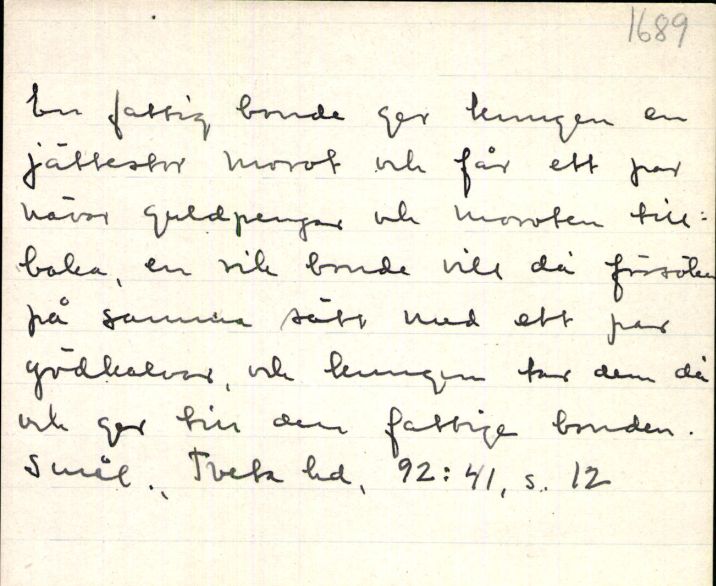 1689
En fattig bonde ger kungen en
jättestor morot och får ett par
nävar guldpengar och moroten till-
baka, en rik bonde vill då försöka
på samma sätt med ett par
gödkalvar, och kungen tar dem då
och ger till den fattige bonden.
Smål., Tveta hd, 92:41, s. 12